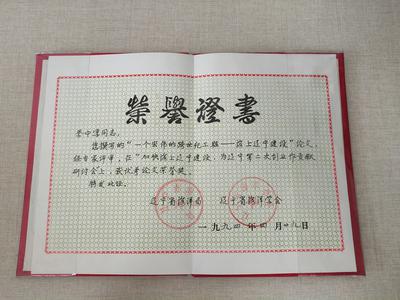 荣誉證書
荣中谭同志：
您撰写的“一个宏伟的跨世纪工程——海上辽宁建设”论文，
经专家评审，在“加快海上辽宁建设，为辽宁第二次创业作贡献
研讨会上，获优秀论文荣誉奖。
特发此证。
辽宁省海洋局 辽宁省海洋学会
一九九四年四月廿八日